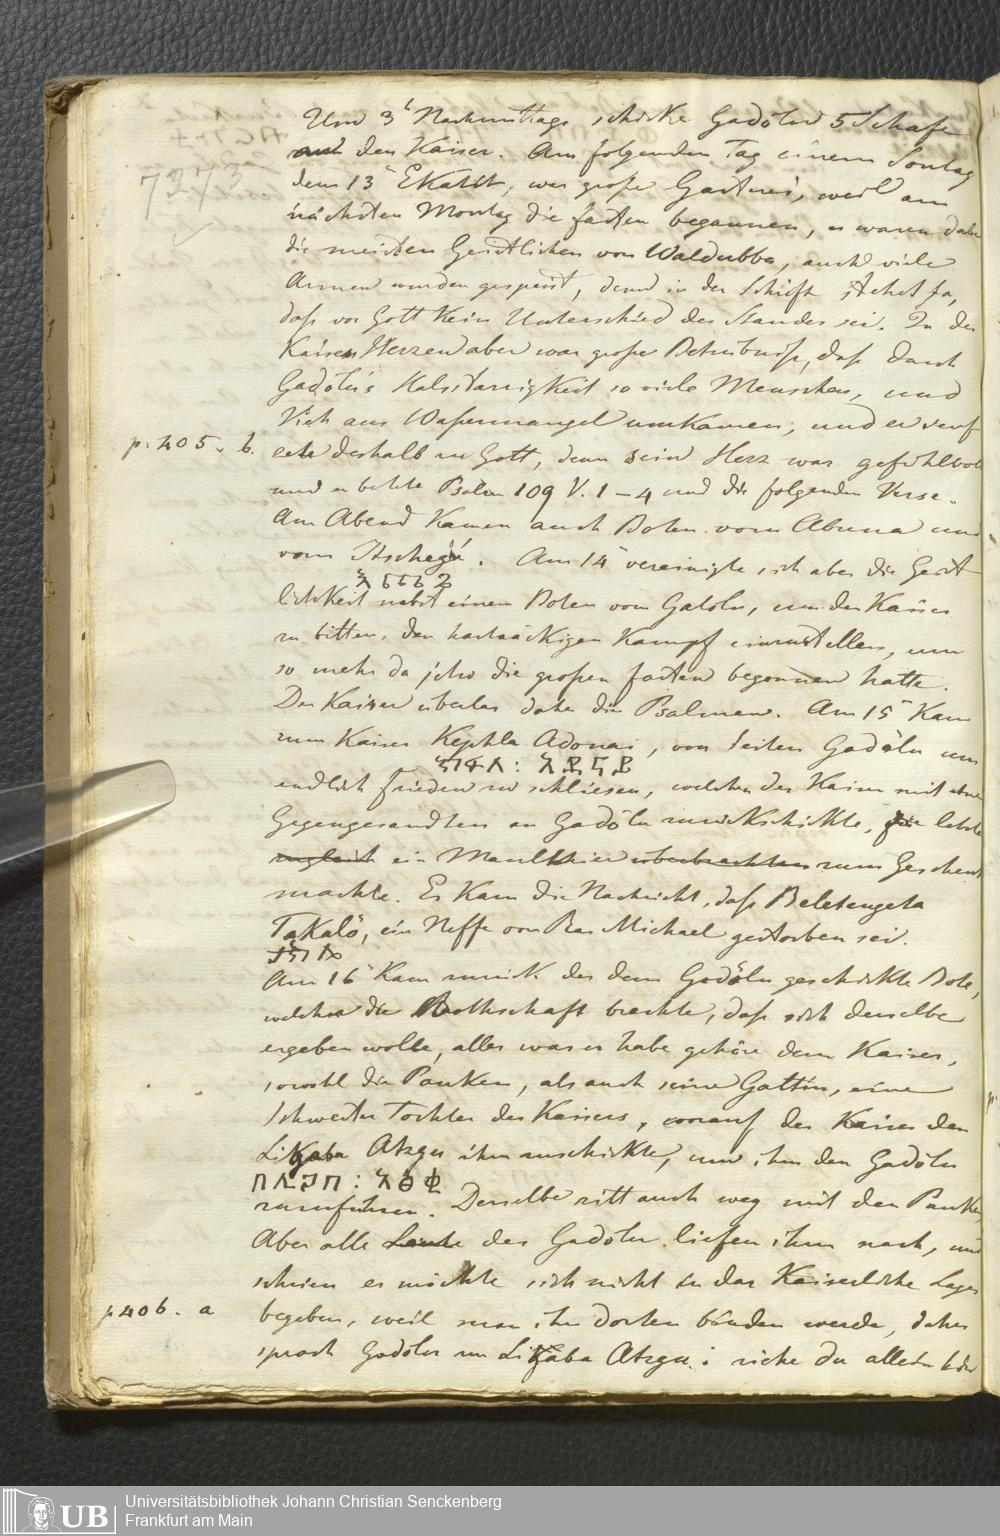 Und 3 h Nachmittags schickte Gadölu 5 Schafe
den Kaiser. Am folgenden Tag einem Sontag
7273
dem 13 Ekatit, war große Gasterei, weil am
nächsten Montag die fasten begannen, es waren dabei
die meisten Geistlichen von Waldubba, auch viele
Armen wurden gespeist, denn in der Schrift stehet ja,
daß vor Gott kein Unterschied des Standes sei. In des
Kaisers Herzen aber war große Betrübniß, daß durch
Gadölu's Halsstarrigkeit so viele Menschen, und
Vieh aus Waßermangel umkamen, und er seuf
p. 405. b.
zete deshalb zu Gott, denn sein Herz war gefühlvoll
und er betete Psalm 109 V. 1–4 und die folgenden Verse.
Am Abend kamen auch Boten vom Abuna und
vom Itschegé. Am 14 vereinigte sich aber die Geist
lichkeit nebst einem Boten vom Gadolu, um den Kaiser
zu bitten, den hartnäckigen Kampf einzustellen, um
so mehr da jetzo die großen fasten begonnen hatte.
Der Kaiser überlas daher die Psalmen. Am 15 kam
zum Kaiser Kephla Adonai, von Seiten Gadölu um
endlich frieden zu schliesen, welchen der Kaiser mit
Gegengesandten an Gadölu zurückschikte,
zugleich ein Maulthier überbrachten zum Geschenk
machte. Es kam die Nachricht, daß Beletengeta
Takalö, ein Neffe von Ras Michael gestorben sei.
ተካሎ
Am 16 kam zurück der dem Gadölu geschickte Bote,
welcher die Bothschaft brachte, daß sich derselbe
ergeben wolle, alles was er habe gehöre dem Kaiser,
sowohl die Pauken, als auch seine Gattin, eine
Schwester Tochter des Kaisers, worauf der Kaiser den
Likaba Atzgu ihm zuschickte, um ihm den Gadölu
zuzuführen. Derselbe ritt auch weg mit den Pauken,
Aber alle Leute des Gadolu liefen ihm nach, und
schrien er möchte sich nicht in das Kaiserliche Lager
p 406. a
begeben, weil man ihn dorten binden werde, daher
sprach Gadolu zu Likaba Atzgu: ziehe du allein
Universitätsbibliothek Johann Christian Senckenberg
Frankfurt am Main
UB